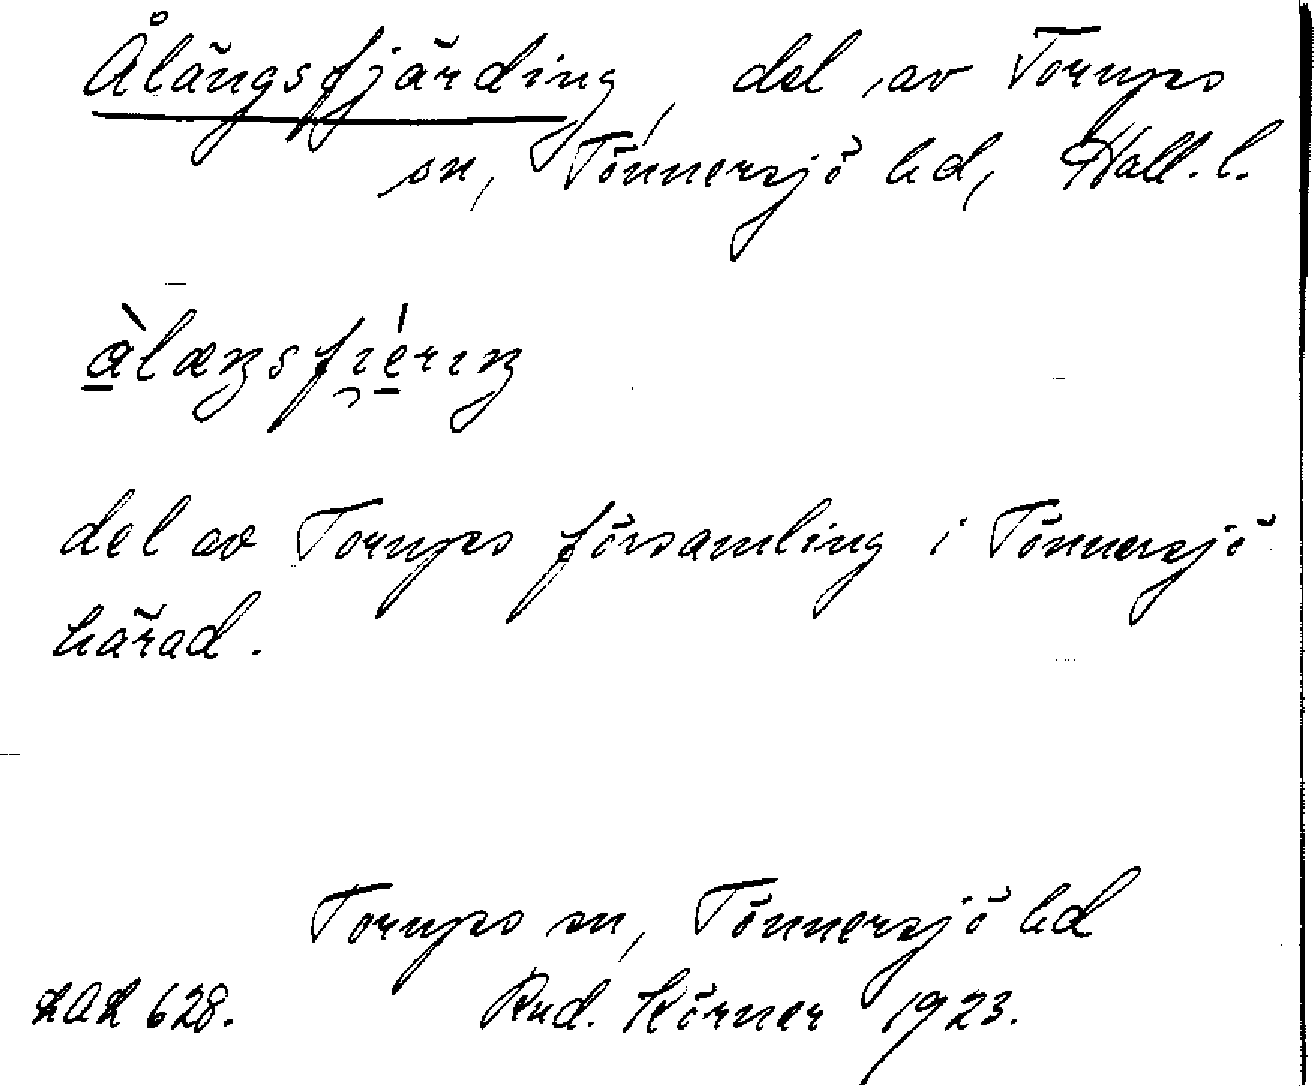 Ålängsfjärding, del av Torups
sn, Tönnersjö hd, Hall. l.
àlæŋsfi̯érıŋ
del av Torups församling i Tönnersjö
härad.
Torups sn, Tönnersjö hd
628. Rud. Körner 1923.